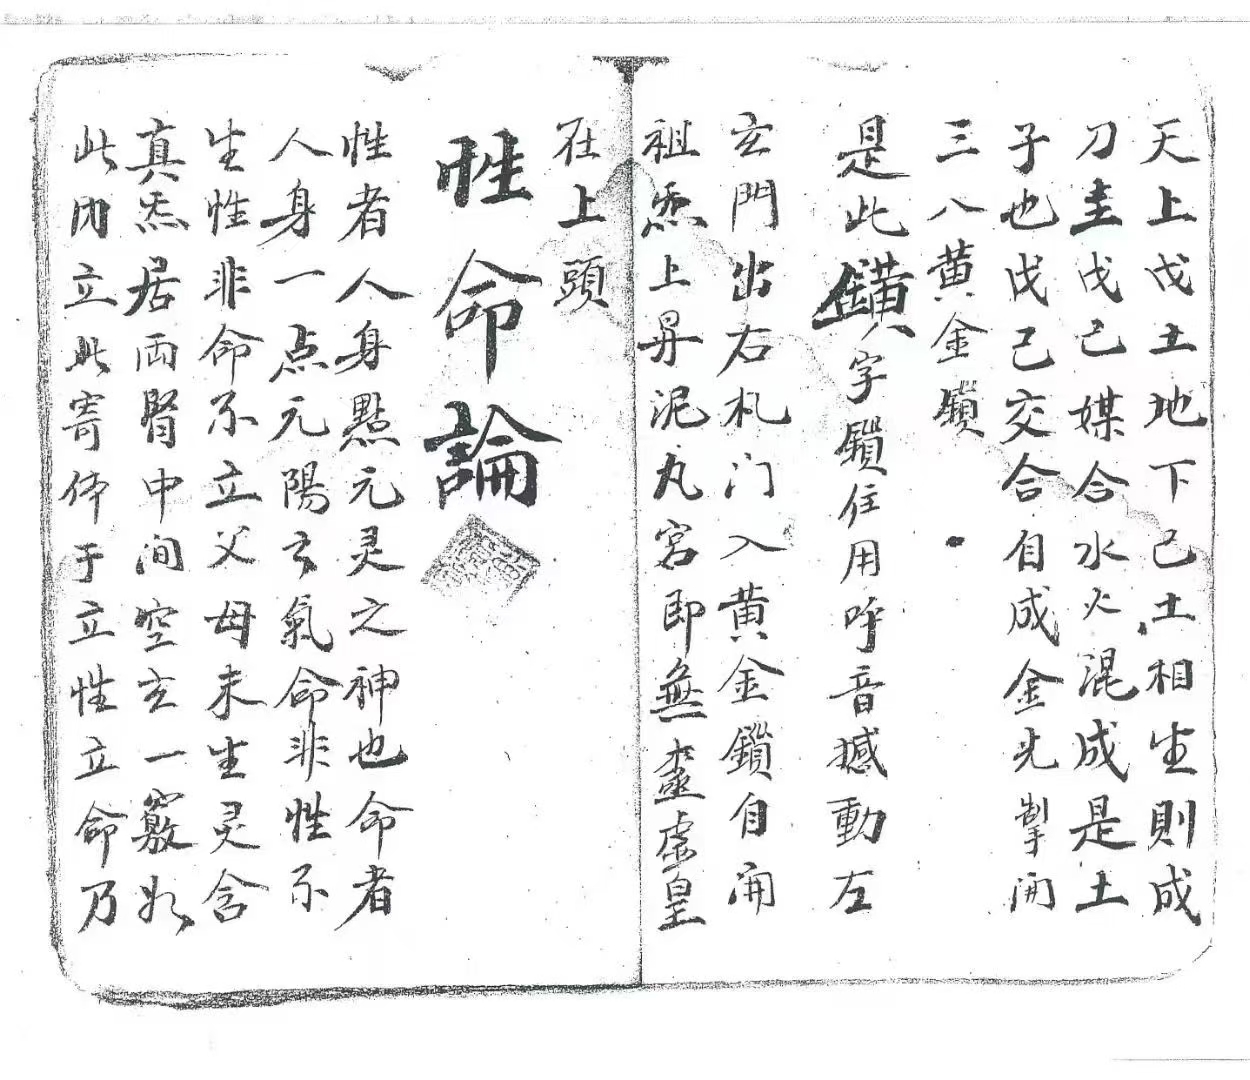 天上戊土地下己土相生則成
刀圭戊己媒合水火混成是土
子也戊己交合自成金光掣開
三八黄金鎖
是此鐄字鎖住用吽音撼動左
玄門出右札门入黄金鎖自開
祖炁上昇泥丸宮即無虚皇
在上頭
性命論
性者人身點元灵之神也命者
人身一点元陽玄氣命非性不
生性非命不立父母未生灵含
真炁居両腎中间空玄一竅如
此内立此寄体于立性立命乃